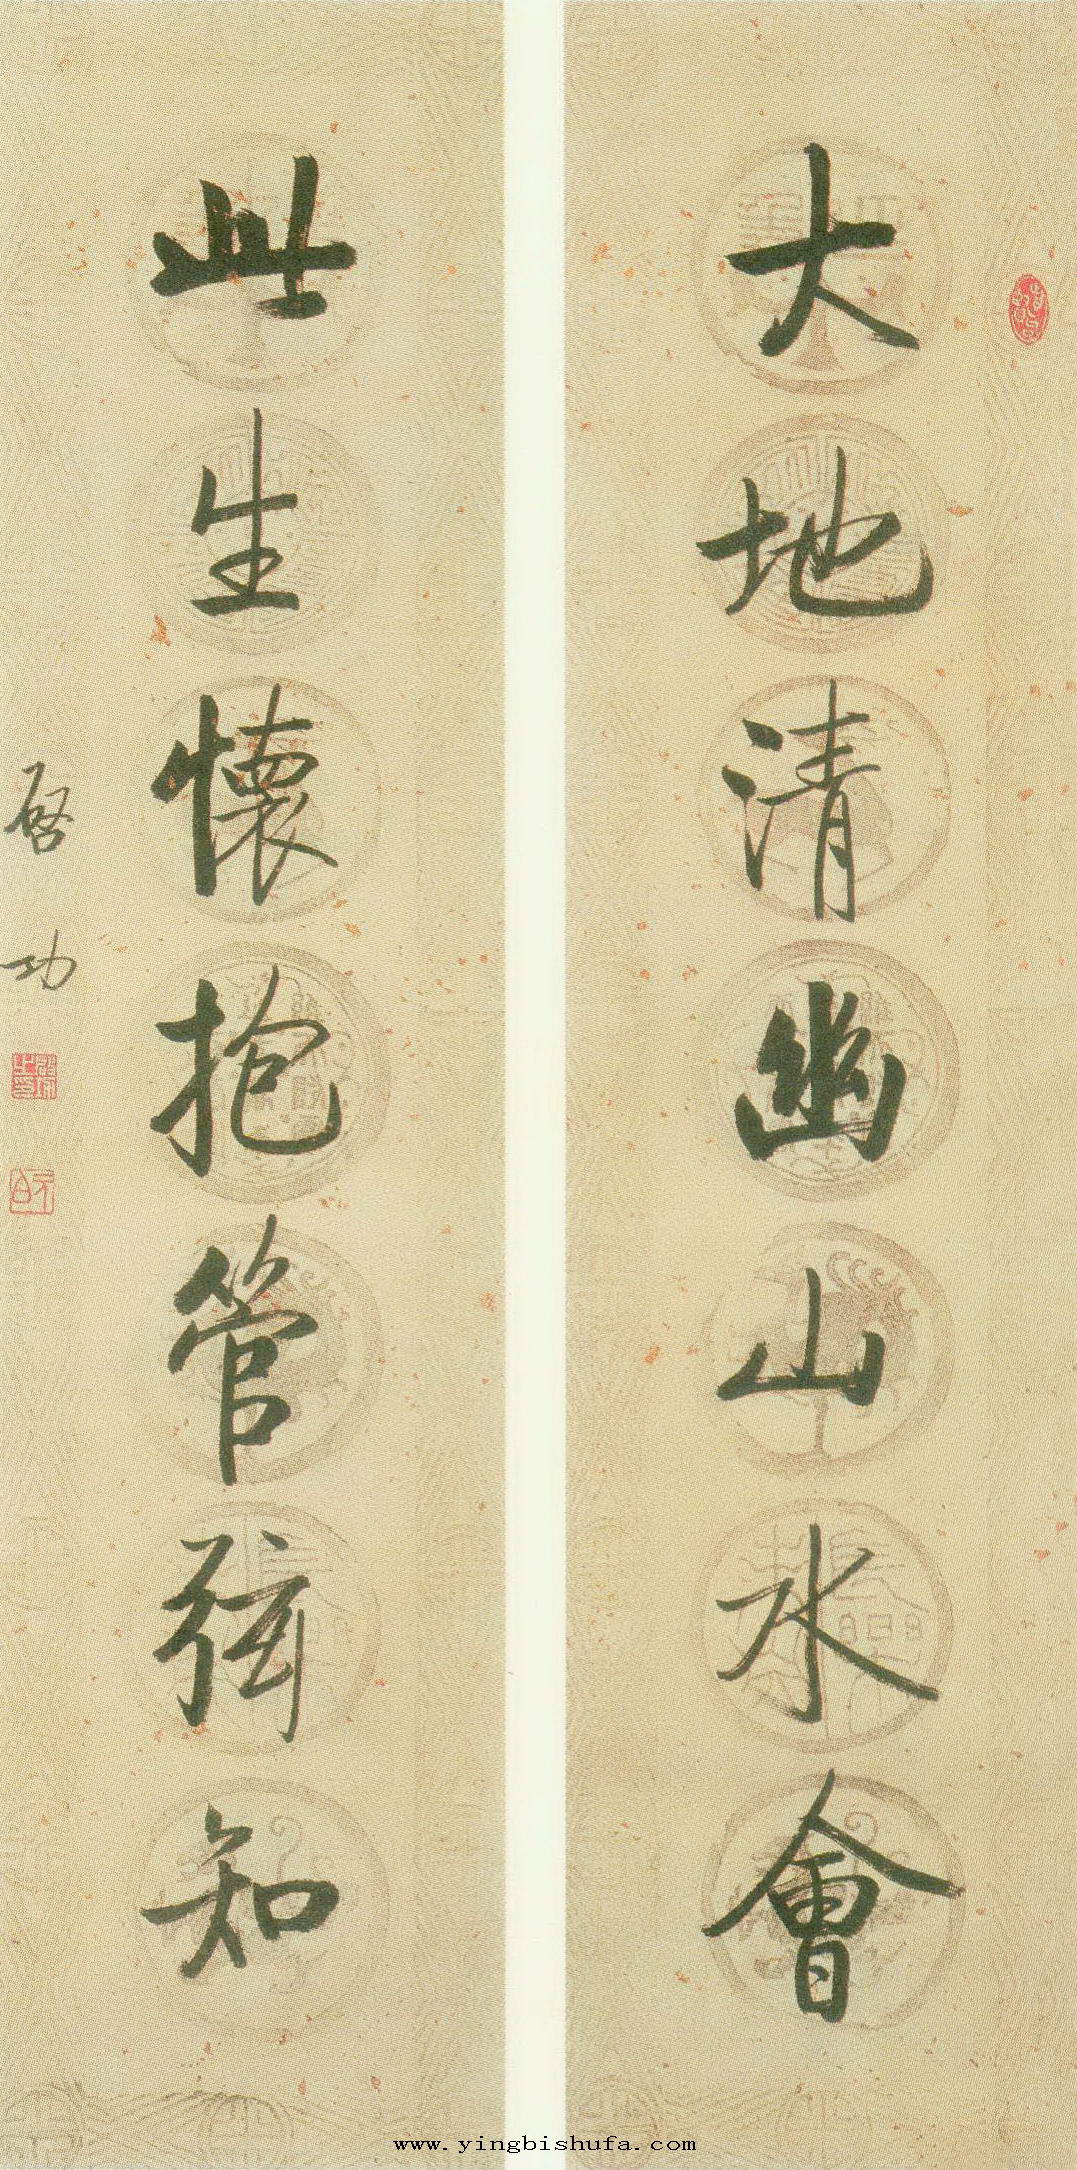 大地清幽山水會
此生懷抱管弦知
啓功
www.yingbishufa.com